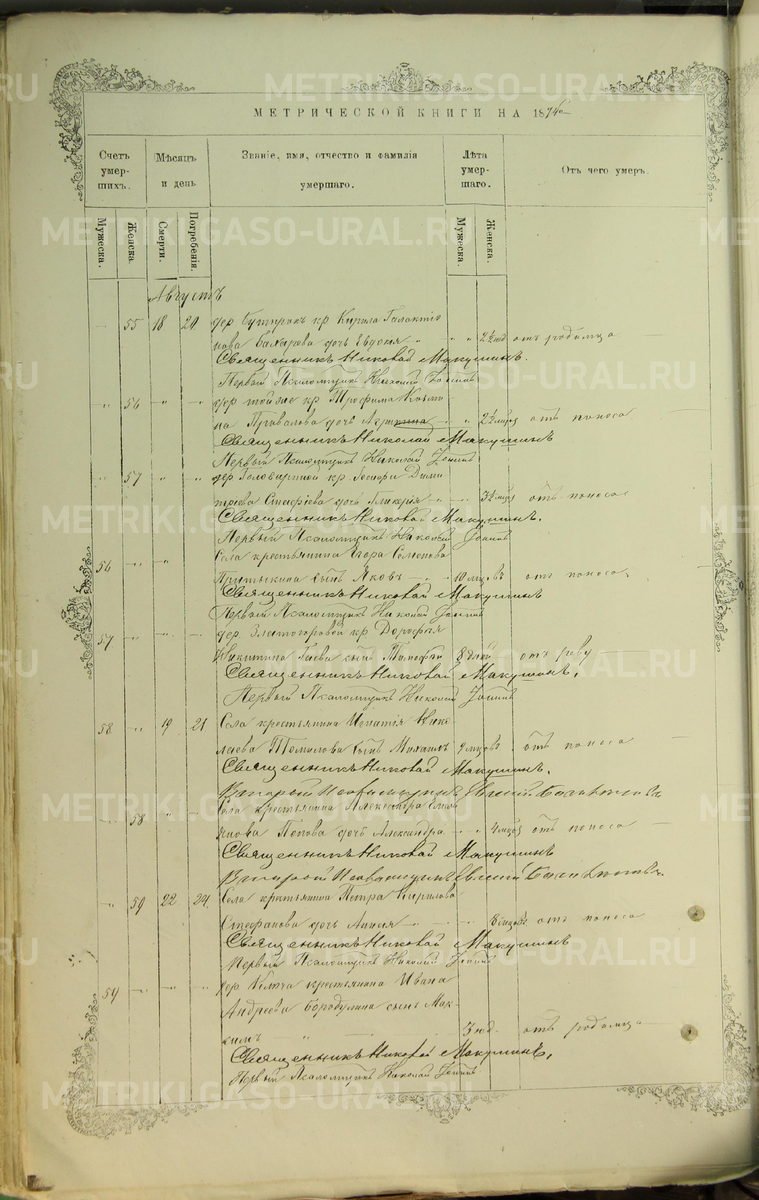 МЕТРИЧЕСКОЙ КНИГИ НА 1874
Счетъ умершихъ.
Мѣсяцъ и день
Званіе, имя, отчество и фамилія умершаго.
Лѣта умершаго.
Отъ чего умеръ.
Мужеска.
Женска.
Смерти.
Погребенія.
Мужеска.
Женска.
Августъ
55 18 20 дер кр Кирила Галактіо
нова дочь Евдокія 2½ нед отъ родимца
Священникъ Николай Макушинъ.
Первый Псаломщикъ Николай
56 дер кр Трофима Козми
на Привалова дочь 2½ мцов отъ поноса
Священникъ Николай Макушинъ
Первый Псаломщикъ Николай
57 дер Головыриной кр Дими
тріева дочь 3½ мцов отъ поноса
Священникъ Николай Макушинъ.
Первый Псаломщикъ Николай
Села крестьянина Егора Семенова
56 сынъ Яковъ 10 мцовъ отъ поноса.
Священникъ Николай Макушинъ
Первый Псаломщикъ Николай
дер Златогоровой кр Дорофея
57 Никитина Гаева сынъ Тимофей 8 дней отъ реву
Священникъ Николай Макушинъ.
Первый Псаломщикъ Николай
58 19 21 Села крестьянина Игнатія Нико
лаева Томилова сынъ Михаилъ 9 мцовъ отъ поноса
Священникъ Николай Макушинъ.
Второй Псаломщикъ Евгеній
Села крестьянина Александра
58 Попова дочь Александра 4 мцов отъ поноса
Священникъ Николай Макушинъ
Второй Псаломщикъ Евгеній
59 22 24 Села крестьянина Петра Кирилова
Стефанова дочь Анисія 8 мцовъ отъ поноса
Священникъ Николай Макушинъ
Первый Псаломщикъ Николай
59 дер крестьянина Ивана
Андреева Бородулина сынъ Мак-
симъ 3 нд. отъ родимца
Священникъ Николай Макушинъ.
Первый Псаломщикъ Николай
METRIKI.GASO-URAL.RU